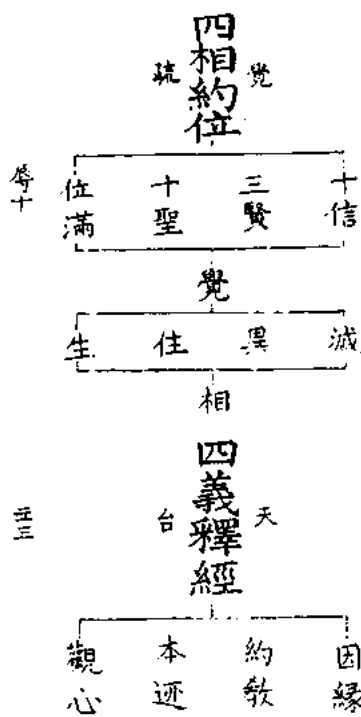 四相約位
覺疏
十信
三賢
十聖
位滿
辱十
覺
滅
異
住
生
相
四義釋經
天台
因緣
約教
本迹
觀心